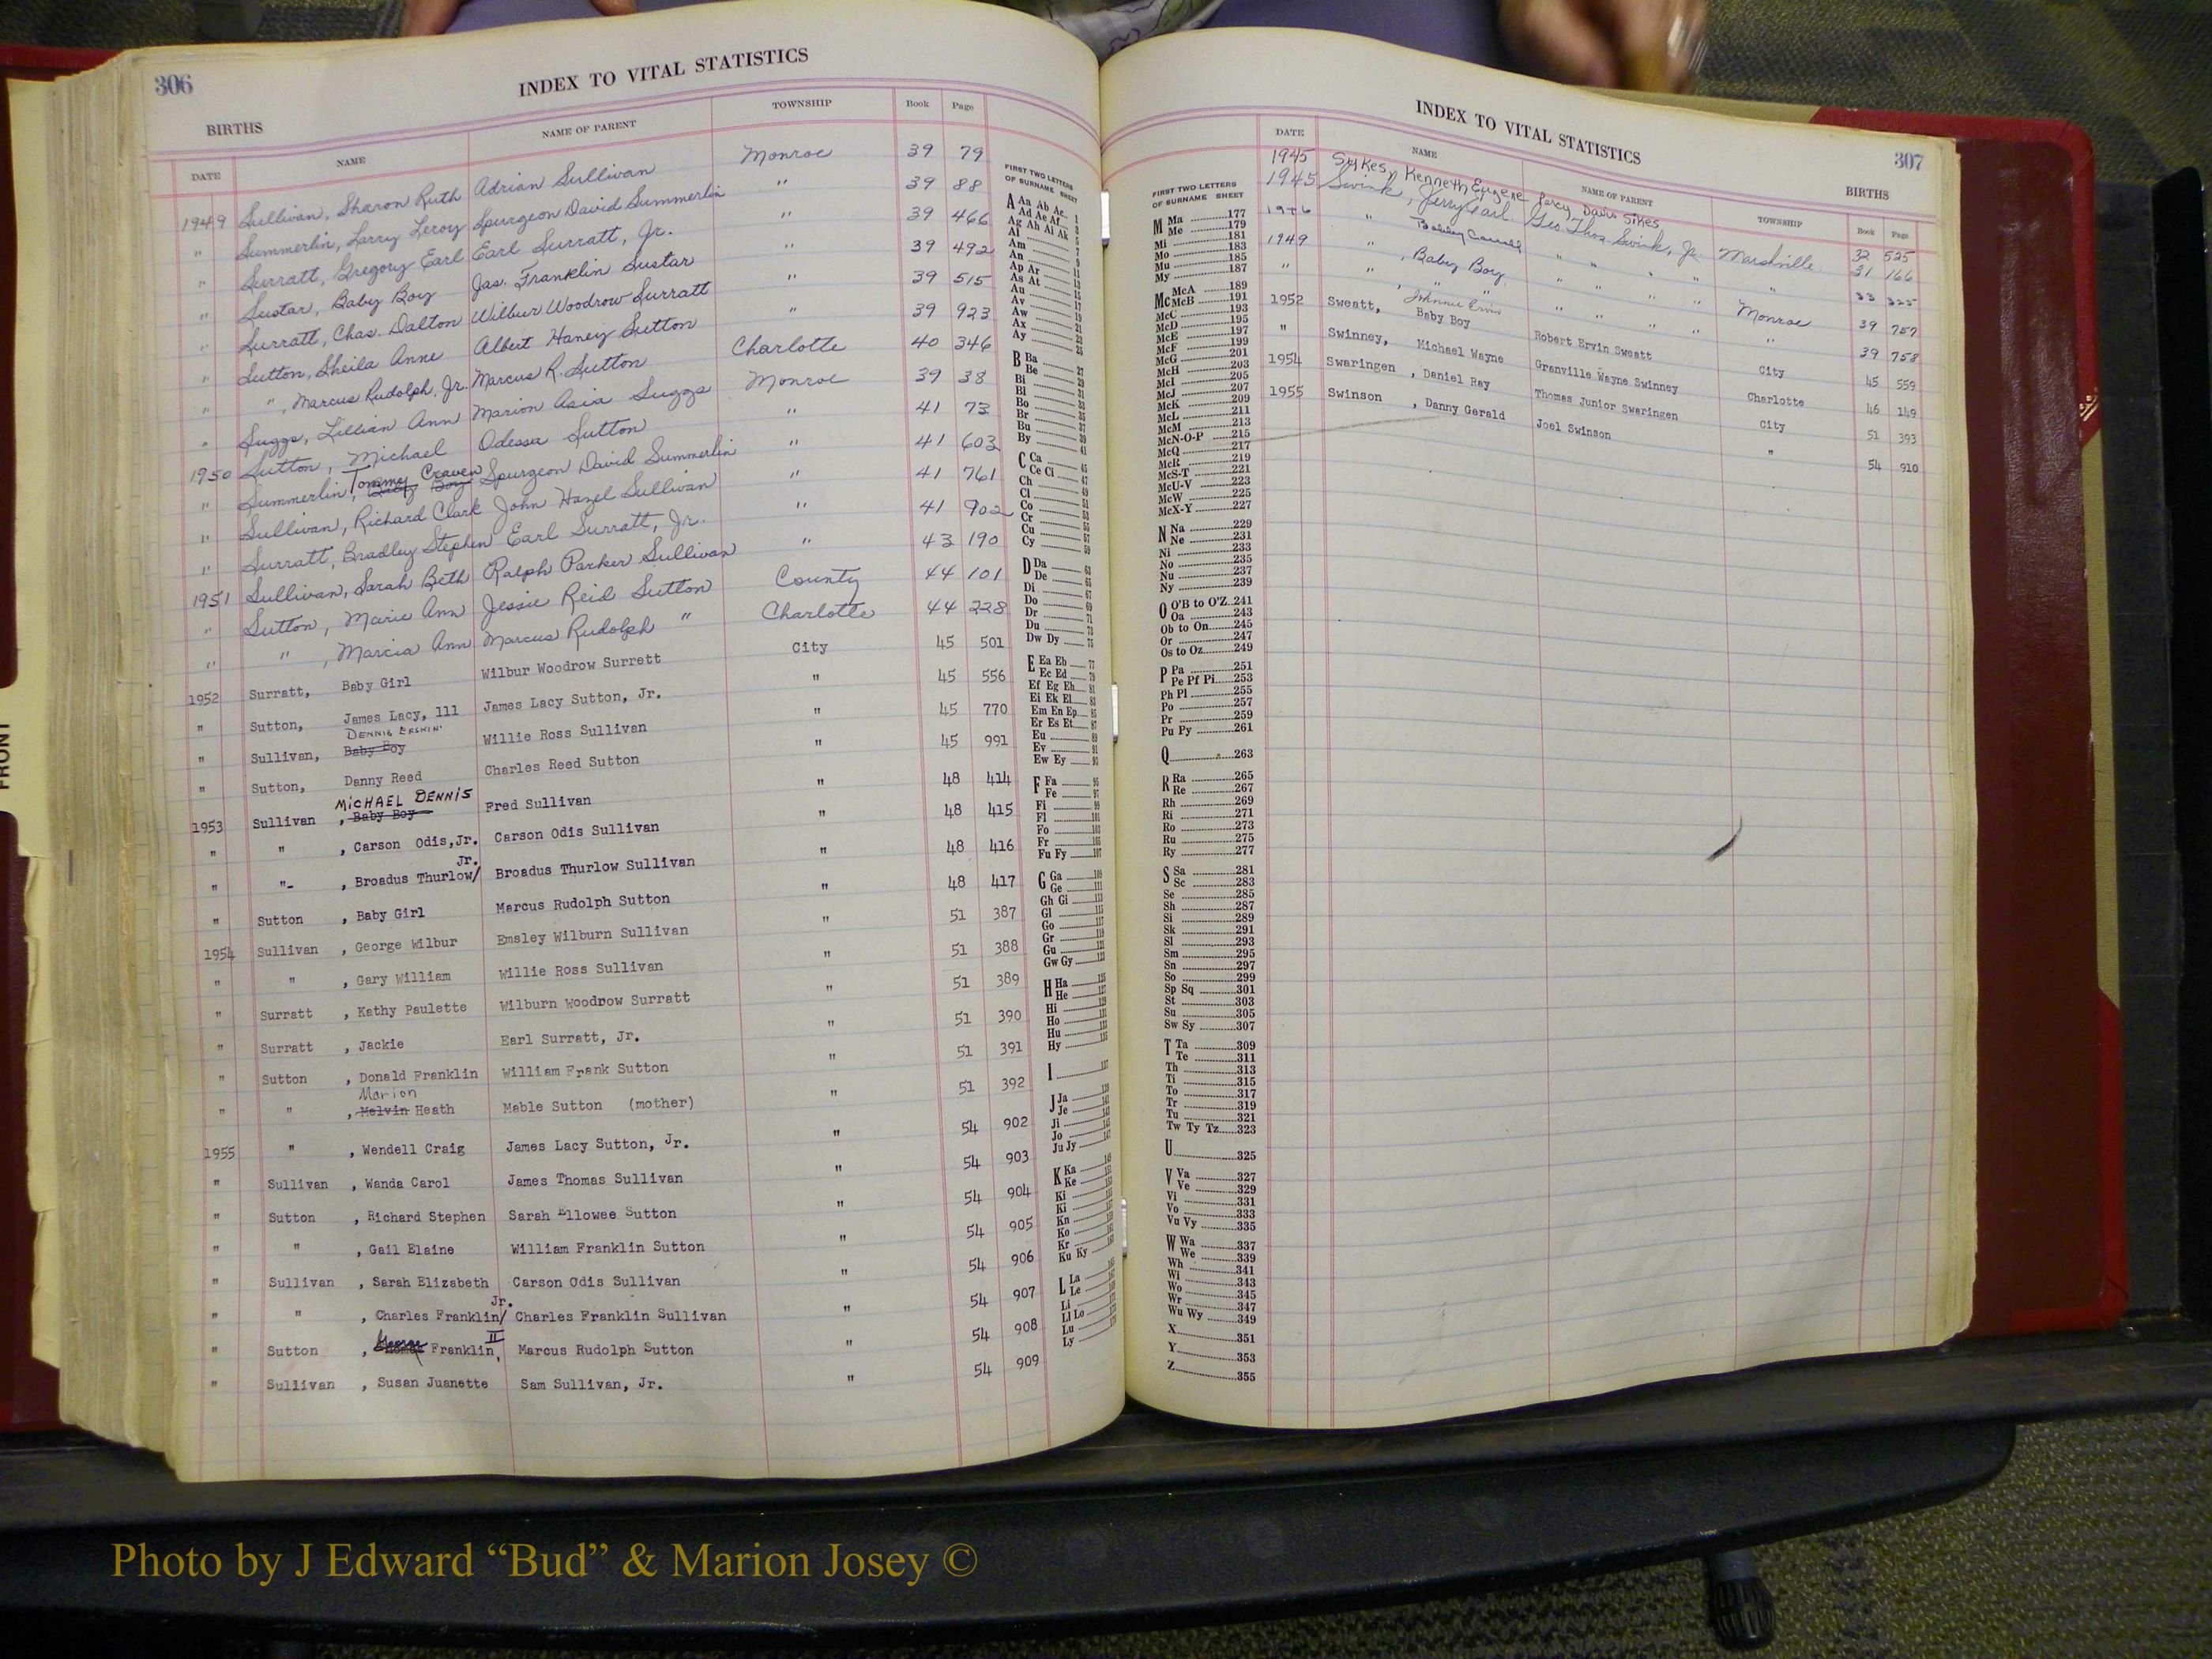 306
INDEX TO VITAL STATISTICS
BIRTHS
DATE NAME NAME OF PARENT TOWNSHIP Book Page
1949 Sullivan, Sharon Ruth Adrian Sullivan Monroe 39 79
" Summerlin, Larry Leroy Spurgeon David Summerlin " 39 88
" Surratt, Gregory Earl Earl Surratt, Jr. " 39 466
" Sustar, Baby Boy Jas. Franklin Sustar " 39 492
" Surratt, Chas. Dalton Wilbur Woodrow Surratt " 39 515
" Sutton, Sheila Anne Albert Haney Sutton " 39 923
" " , Marcus Rudolph, Jr. Marcus R. Sutton Charlotte 40 346
" Suggs, Lillian Ann Marion Asia Suggs Monroe 39 38
1950 Sutton, Michael Odessa Sutton " 41 73
" Summerlin, Tommy Craven Baby Boy Spurgeon David Summerlin " 41 603
" Sullivan, Richard Clark John Hazel Sullivan " 41 761
" Surratt, Bradley Stephen Earl Surratt, Jr. " 41 902
1951 Sullivan, Sarah Beth Ralph Parker Sullivan " 43 190
" Sutton, Marie Ann Jessie Reid Sutton County 44 101
" " , Marcia Ann Marcus Rudolph " Charlotte 44 228
1952 Surratt, Baby Girl Wilbur Woodrow Surrett City 45 501
" Sutton, James Lacy, 111 James Lacy Sutton, Jr. " 45 556
DENNIS ERSKIN
" Sullivan, Baby Boy Willie Ross Sullivan " 45 770
" Sutton, Danny Reed Charles Reed Sutton " 45 991
MICHAEL DENNIS
1953 Sullivan , Baby Boy Fred Sullivan " 48 414
" " , Carson Odis, Jr. Carson Odis Sullivan " 48 415
Jr.
" "- , Broadus Thurlow/ Broadus Thurlow Sullivan " 48 416
" Sutton , Baby Girl Marcus Rudolph Sutton " 48 417
1954 Sullivan , George Wilbur Emsley Wilburn Sullivan " 51 387
" " , Gary William Willie Ross Sullivan " 51 388
" Surratt , Kathy Paulette Wilburn Woodrow Surratt " 51 389
" Surratt , Jackie Earl Surratt, Jr. " 51 390
" Sutton , Donald Franklin William Frank Sutton " 51 391
Marion
" " , Melvin Heath Mable Sutton (mother) " 51 392
1955 " , Wendell Craig James Lacy Sutton, Jr. " 54 902
" Sullivan , Wanda Carol James Thomas Sullivan " 54 903
" Sutton , Richard Stephen Sarah Ellowee Sutton " 54 904
" " , Gail Elaine William Franklin Sutton " 54 905
" Sullivan , Sarah Elizabeth Carson Odis Sullivan " 54 906
Jr.
" " , Charles Franklin/ Charles Franklin Sullivan " 54 907
II
" Sutton , Franklin, Marcus Rudolph Sutton " 54 908
" Sullivan , Susan Juanette Sam Sullivan, Jr. " 54 909
FIRST TWO LETTERS
OF SURNAME SHEET
A Aa Ab Ac
Ad Ae Af
Ag Ah Ai Ak
Al
Am
An
Ap Ar
As At
Au
Av
Aw
Ax
Ay
B Ba
Be
Bi
Bl
Bo
Br
Bu
By
C Ca
Ce Ci
Ch
Cl
Co
Cr
Cu
Cy
D Da
De
Di
Do
Dr
Du
Dw Dy
E Ea Eb
Ec Ed
Ef Eg Eh
Ei Ek El
Em En Ep
Er Es Et
Eu
Ev
Ew Ey
F Fa
Fe
Fi
Fl
Fo
Fr
Fu Fy
G Ga
Ge
Gh Gi
Gl
Go
Gr
Gu
Gw Gy
H Ha
He
Hi
Ho
Hu
Hy
I
J Ja
Je
Ji
Jo
Ju Jy
K Ka
Ke
Ki
Kl
Kn
Ko
Kr
Ku Ky
L La
Le
Li
Ll Lo
Lu
Ly
INDEX TO VITAL STATISTICS
307
BIRTHS
DATE NAME NAME OF PARENT TOWNSHIP Book Page
1945 Sykes, Kenneth Eugene Percy Davis Sikes 32 525
1945 Swink, Jerry Earl Geo. Thos. Swink, Jr. Marshville 31 166
1946 " Bobby Carroll " " " " " 33 325
1949 " , Baby Boy " " " " Monroe 39 757
" " , " " " " " " " 39 758
Johnnie Ervin
1952 Sweatt, Baby Boy Robert Ervin Sweatt City 45 559
" Swinney, Michael Wayne Granville Wayne Swinney Charlotte 46 149
1954 Swaringen , Daniel Ray Thomas Junior Swaringen City 51 393
1955 Swinson , Danny Gerald Joel Swinson " 54 910
FIRST TWO LETTERS
OF SURNAME SHEET
M Ma 177
Me 179
Mi 181
Mo 183
Mu 185
My 187
Mc McA 189
McB 191
McC 193
McD 195
McE 197
McF 199
McG 201
McH 203
McI 205
McJ 207
McK 209
McL 211
McM 213
McN-O-P 215
McQ 217
McR 219
McS-T 221
McU-V 223
McW 225
McX-Y 227
N Na 229
Ne 231
Ni 233
No 235
Nu 237
Ny 239
O O'B to O'Z 241
Oa 243
Ob to On 245
Or 247
Os to Oz 249
P Pa 251
Pe Pf Pi 253
Ph Pl 255
Po 257
Pr 259
Pu Py 261
Q 263
R Ra 265
Re 267
Rh 269
Ri 271
Ro 273
Ru 275
Ry 277
S Sa 281
Sc 283
Se 285
Sh 287
Si 289
Sk 291
Sl 293
Sm 295
Sn 297
So 299
Sp Sq 301
St 303
Su 305
Sw Sy 307
T Ta 309
Te 311
Th 313
Ti 315
To 317
Tr 319
Tu 321
Tw Ty Tz 323
U 325
V Va 327
Ve 329
Vi 331
Vo 333
Vu Vy 335
W Wa 337
We 339
Wh 341
Wi 343
Wo 345
Wr 347
Wu Wy 349
X 351
Y 353
Z 355
FRONT
Photo by J Edward “Bud” & Marion Josey ©